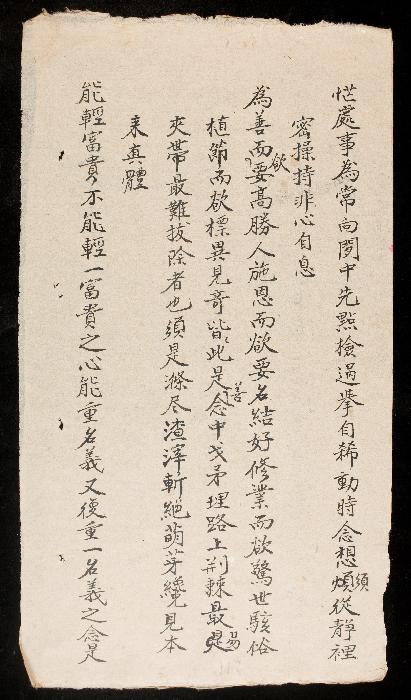 忙處事為常向閒中先點檢過挙自稀動時念想煩須從靜裡
密操持非心自息
為善而要欲高勝人施恩而欲要名結好修業而欲驚世駭俗
植節而欲標異見奇皆此是善念中戈矛理路上荊棘最是易
夾帶最難拔除者也須是滌尽渣滓斬絕萌芽纔見本
来真體
能輕富貴不能輕一富貴之心能重名義又復重一名義之念是